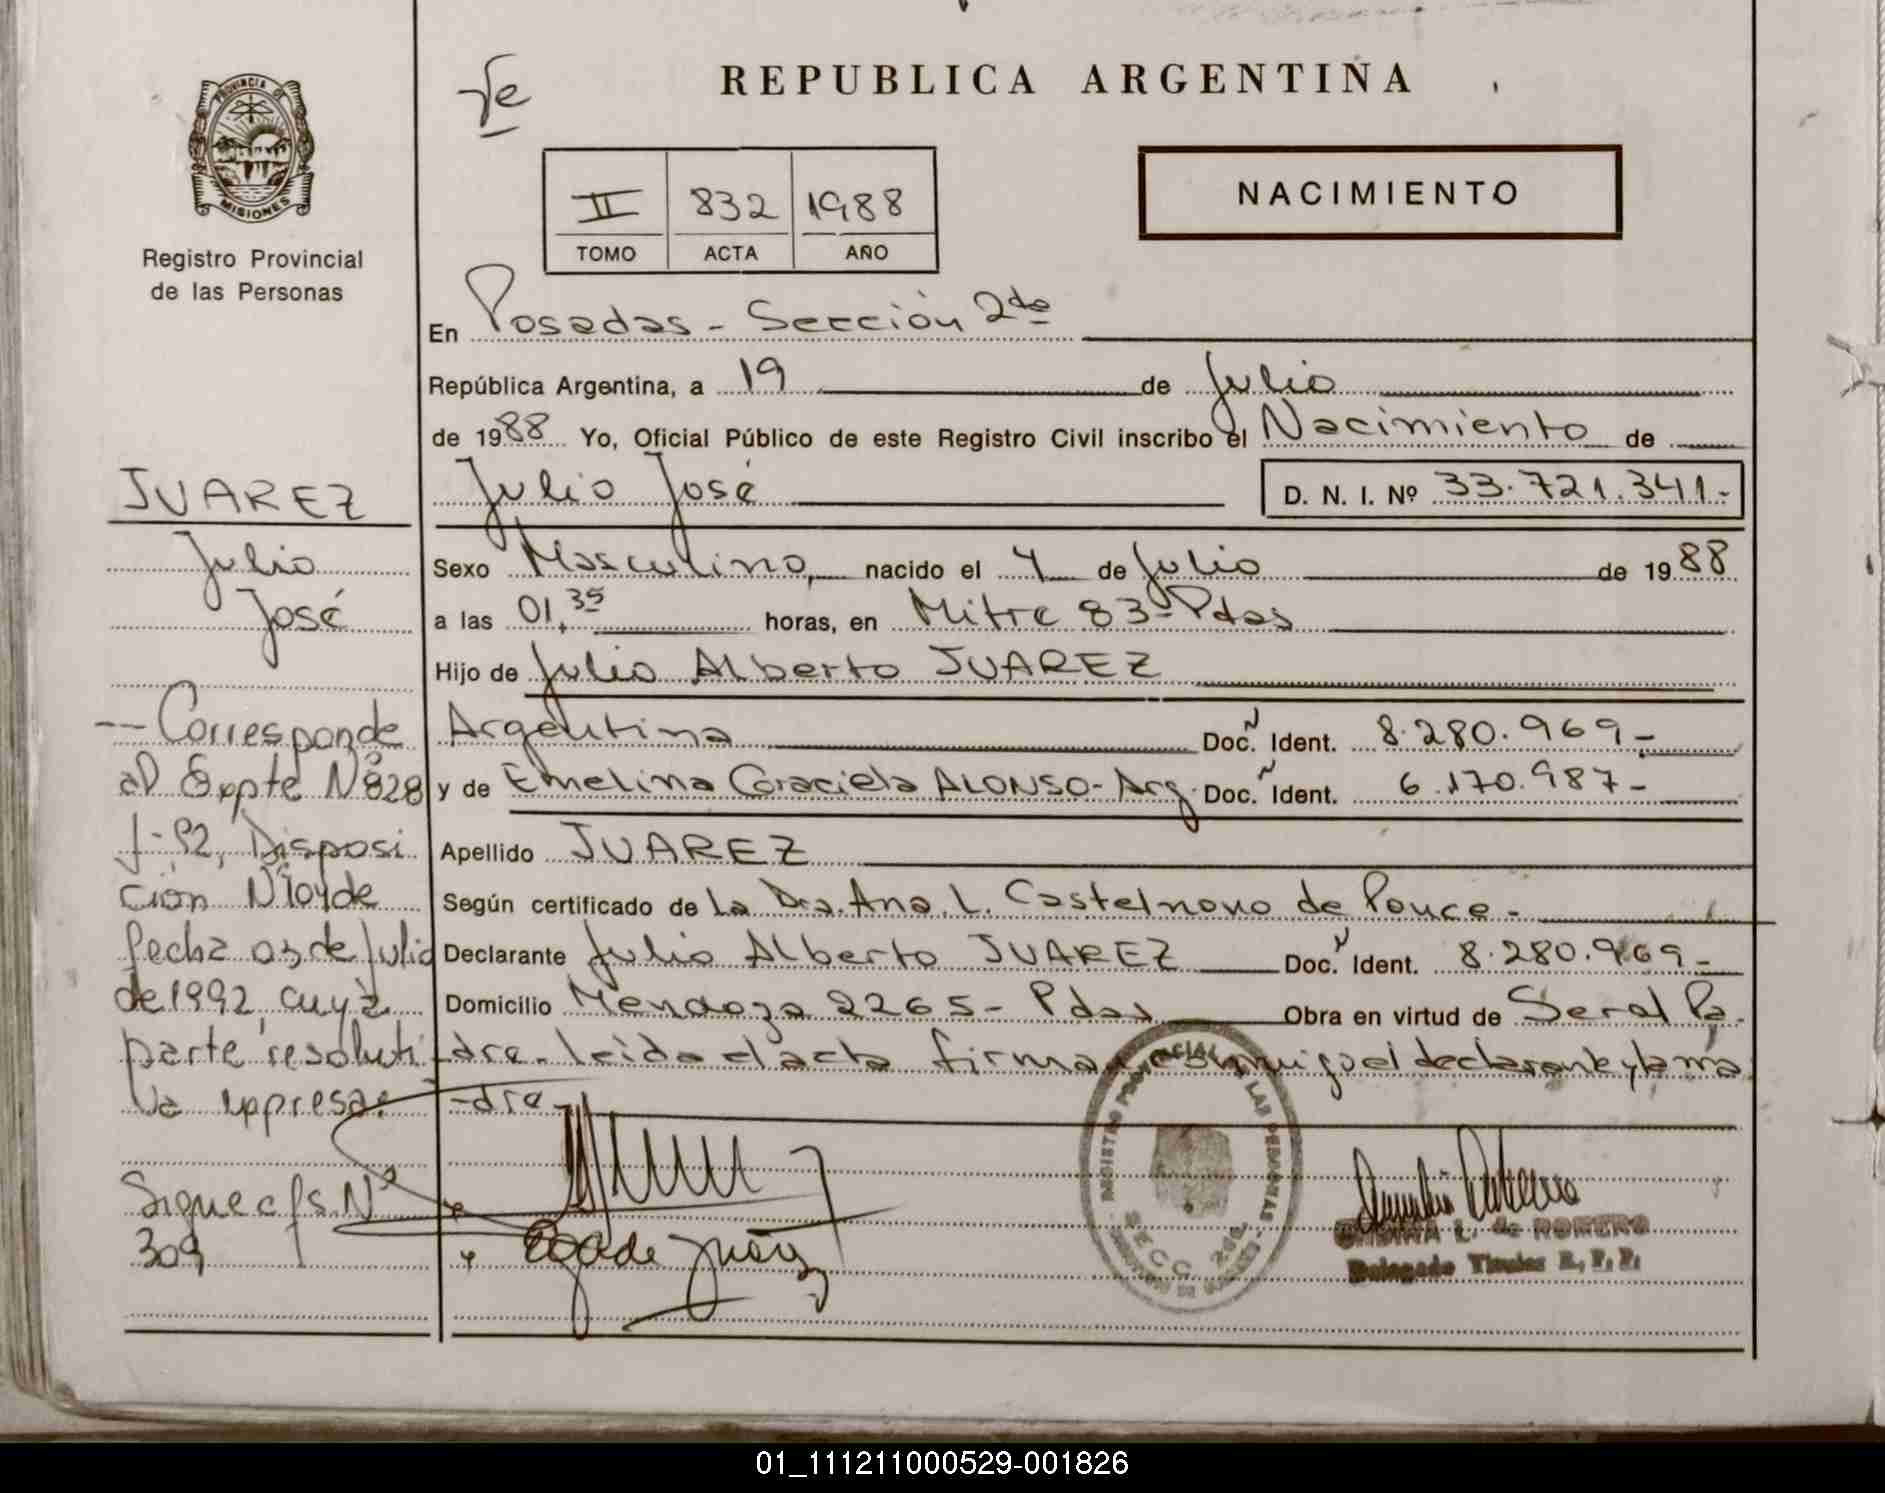 REPUBLICA ARGENTINA
PROVINCIA DE
MISIONES
Registro Provincial
de las Personas
II 832 1988
TOMO ACTA AÑO
NACIMIENTO
En Posadas - Sección 2da
República Argentina, a 19 de Julio
de 1988 Yo, Oficial Público de este Registro Civil inscribo el Nacimiento de
Julio José D. N. I. Nº 33.721.341.-
Sexo Masculino, nacido el 4 de Julio de 1988
a las 01,35 horas, en Mitre 83 - Pdas
Hijo de Julio Alberto JUAREZ
Argentina Doc. Ident. 8.280.969.-
y de Emelina Graciela ALONSO - Arg. Doc. Ident. 6.170.987-
Apellido JUAREZ
Según certificado de La Dra. Ana. L. Castelnovo de Ponce.-
Declarante Julio Alberto JUAREZ Doc. Ident. 8.280.969-
Domicilio Mendoza 2265 - Pdas Obra en virtud de Ser el Pa-
dre. leida el acta firma conmigo el declarante y la ma
-dre
JUAREZ
Julio
José
-- Corresponde
al Expte Nº 828
, Disposi
ción Nº 104 de
fecha 03 de Julio
de 1992, cuya
parte resoluti
va expresa:
Sigue a fs. Nº
309
REGISTRO PROVINCIAL DE LAS PERSONAS
SECC. 2da.
L. de ROMERO
Delegado Titular R. P. P.
01_111211000529-001826